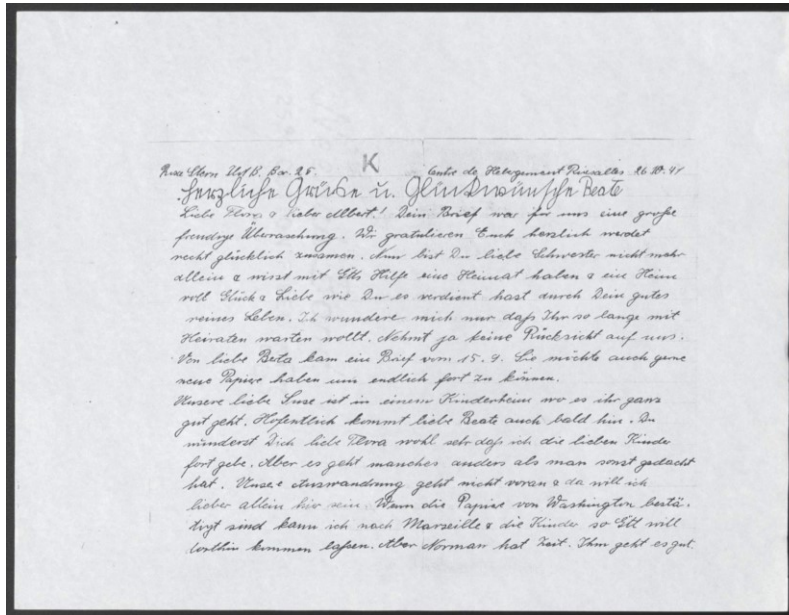 Rosa Stern Ilot B. Bar. 25. K Centre de Hebergement Rivesaltes 26.10.41
Herzliche Grüse u. Glückwünsche Beate
Liebe Flora & lieber Albert! Dein Brief war für uns eine große
freudige Überaschung. Wir gratulieren Euch herzlich werdet
recht glücklich zusamen. Nun bist Du liebe Schwester nicht mehr
allein & wirst mit Gtts Hilfe eine Heimat haben & ein Heim
voll Glück & Liebe wie Du es verdient hast durch Dein gutes
reines Leben. Ich wundere mich nur daß Ihr so lange mit
Heiraten warten wollt. Nehmt ja keine Rücksicht auf uns.
Von liebe Berta kam ein Brief vom 15.9. Sie möchte auch gerne
neue Papiere haben um endlich fort zu können.
Unsere liebe Suse ist in einem Kinderheim wo es ihr ganz
gut geht. Hofentlich kommt liebe Beate auch bald hin. Du
wunderst Dich liebe Flora wohl sehr daß ich die lieben Kinder
fort gebe. Aber es geht manches anders als man sonst gedacht
hat. Unsere Auswandrung geht nicht voran & da will ich
lieber allein hier sein. Wenn die Papiere von Washington bestä-
tigt sind kann ich nach Marseille & die Kinder so Gtt will
dorthin kommen laßen. Aber Norman hat Zeit. Ihm geht es gut.